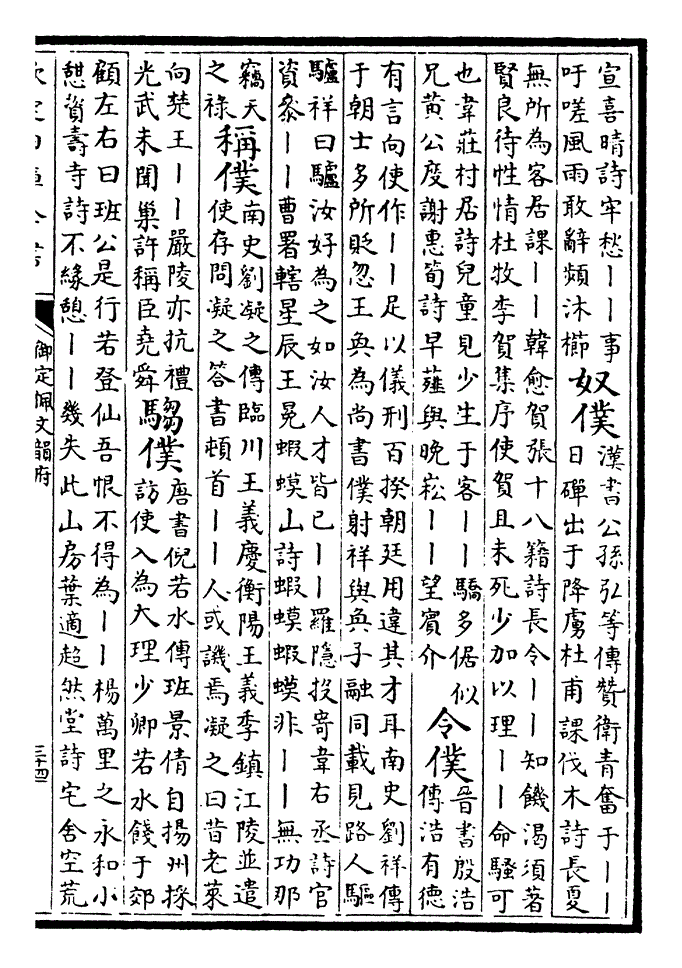 宣喜晴詩牢愁丨丨事
吁嗟風雨敢辭頻沐櫛
奴僕
漢書公孫弘等傳贊衛青奮于丨丨
日磾出于降虜杜甫課伐木詩長夏
無所為客居課丨丨韓愈賀張十八籍詩長令丨丨知饑渴須著
賢良待性情杜牧李賀集序使賀且未死少加以理丨丨命騷可
也韋莊村居詩兒童見少生于客丨丨驕多倨似
兄黄公度謝惠筍詩早薤與晚崧丨丨望賓介
令僕
晉書殷浩
傳浩有德
有言向使作丨丨足以儀刑百揆朝廷用違其才耳南史劉祥傳
于朝士多所貶忽王奐為尚書僕射祥與奐子融同載見路人驅
驢祥曰驢汝好為之如汝人才皆已丨丨羅隱投寄韋右丞詩官
資叅丨丨曹署轄星辰王冕蝦蟆山詩蝦蟆蝦蟆非丨丨無功那
竊天
之祿
稱僕
南史劉凝之傳臨川王義慶衡陽王義季鎮江陵並遣
使存問凝之答書頓首丨丨人或譏焉凝之曰昔老萊
向楚王丨丨嚴陵亦抗禮
光武未聞巢許稱臣堯舜
騶僕
唐書倪若水傳班景倩自揚州採
訪使入為大理少卿若水餞于郊
顧左右曰班公是行若登仙吾恨不得為丨丨楊萬里之永和小
憇資壽寺詩不緣憩丨丨幾失此山房葉適超然堂詩宅舍空荒
御定佩文韻府
三十四